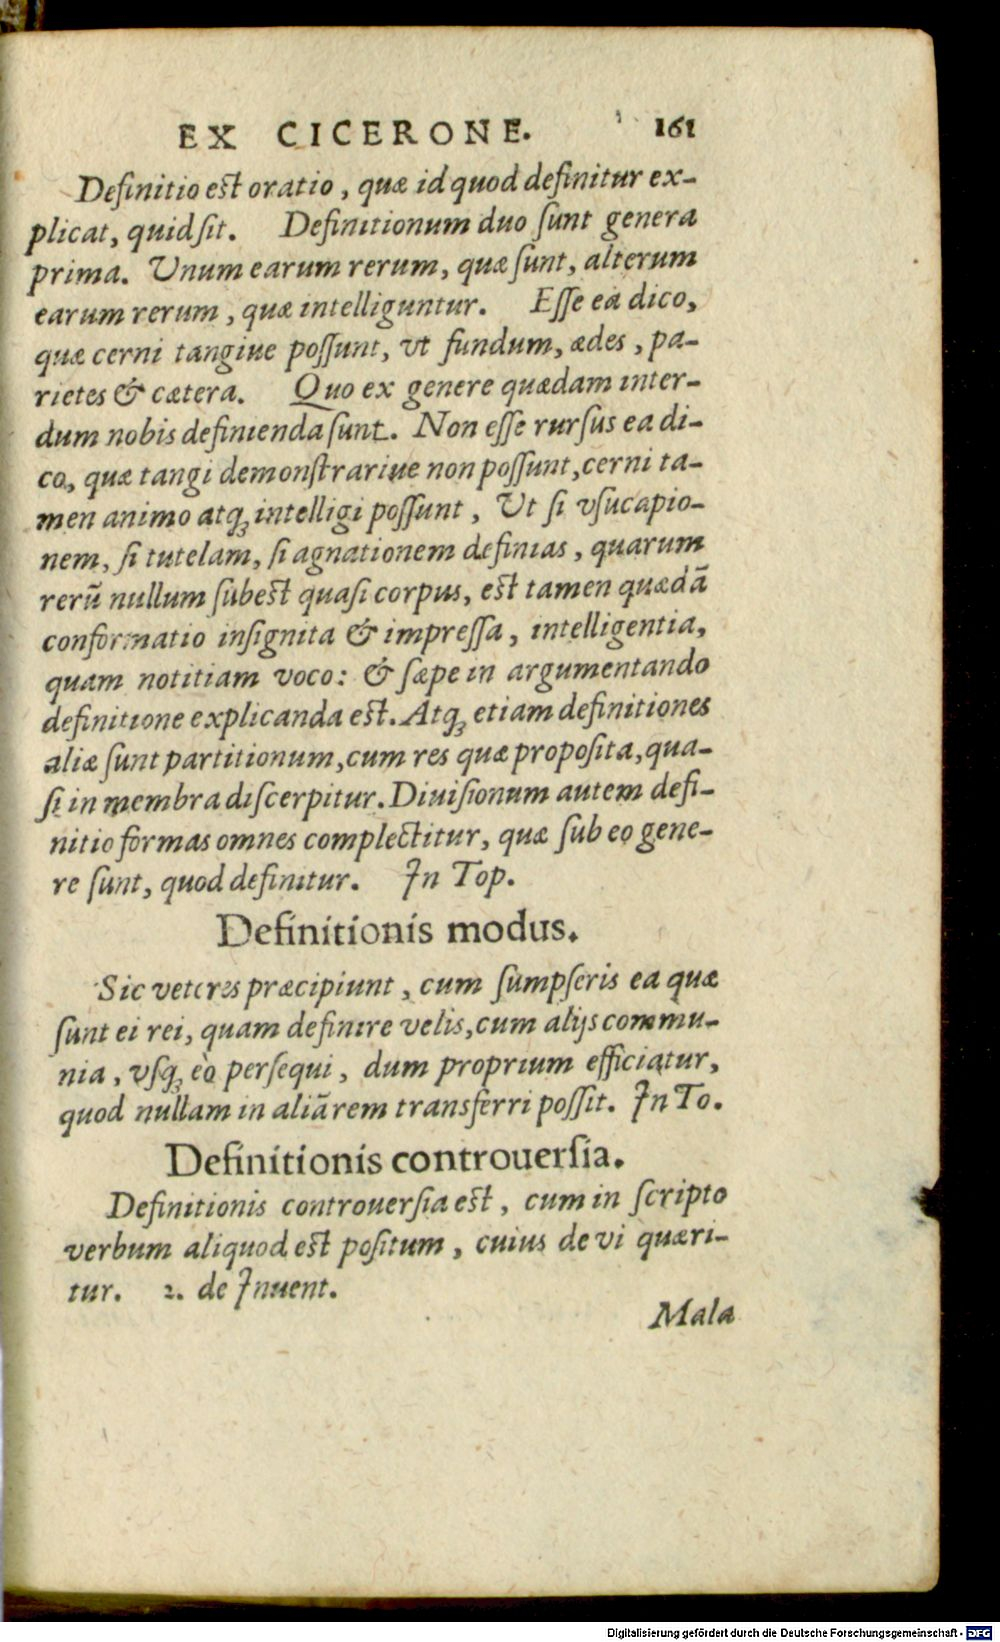 EX CICERONE. 161
Definitio est oratio, quæ id quod definitur ex-
plicat, quid sit. Definitionum duo sunt genera
prima. Unum earum rerum, quæ sunt, alterum
earum rerum, quæ intelliguntur. Esse ea dico,
quæ cerni tangiue possunt, vt fundum, ædes, pa-
rietes & cætera. Quo ex genere quædam inter-
dum nobis definienda sunt. Non esse rursus ea di-
co, quæ tangi demonstrariue non possunt, cerni ta-
men animo atq; intelligi possunt, Ut si vsucapio-
nem, si tutelam, si agnationem definias, quarum
rerū nullum subest quasi corpus, est tamen quædā
conformatio insignita & impressa, intelligentia,
quam notitiam voco: & sæpe in argumentando
definitione explicanda est. Atq; etiam definitiones
aliæ sunt partitionum, cum res quæ proposita, qua-
si in membra discerpitur. Diuisionum autem defi-
nitio formas omnes complectitur, quæ sub eo gene-
re sunt, quod definitur. In Top.
Definitionis modus.
Sic veteres præcipiunt, cum sumpseris ea quæ
sunt ei rei, quam definire velis, cum alijs commu-
nia, vsq; eò persequi, dum proprium efficiatur,
quod nullam in aliā rem transferri possit. In To.
Definitionis controuersia.
Definitionis controuersia est, cum in scripto
verbum aliquod est positum, cuius de vi quæri-
tur. 2. de Inuent.
Mala
Digitalisierung gefördert durch die Deutsche Forschungsgemeinschaft - DFG